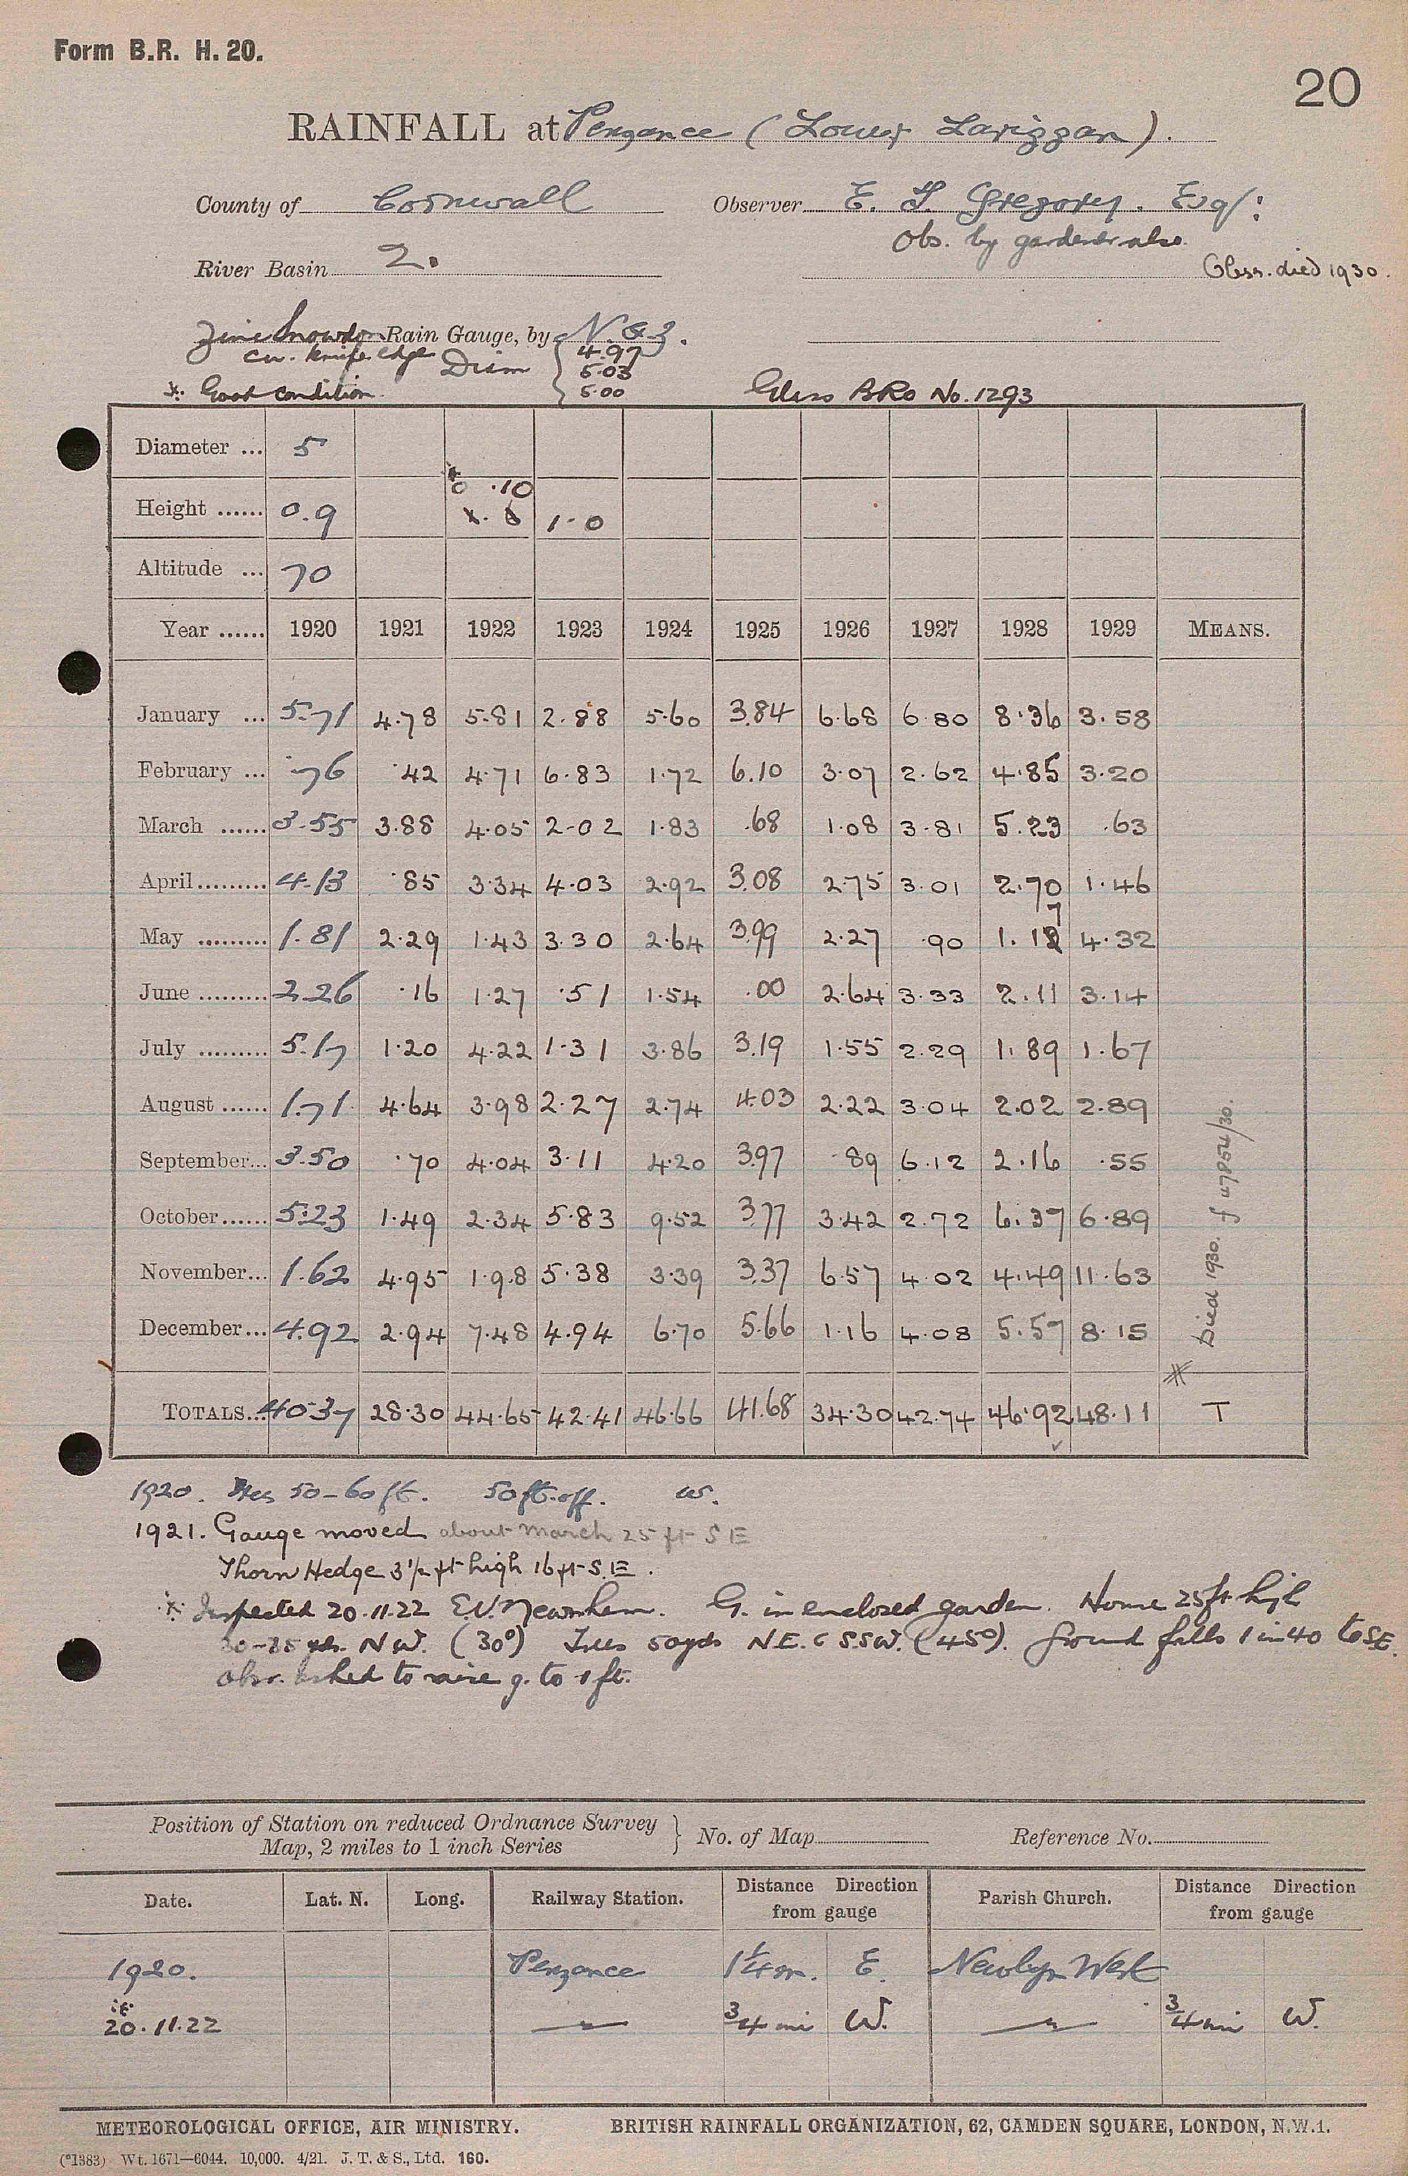 Form B.R. H. 20.
20
RAINFALL at Penzance (Lower Larizzan).
County of Cornwall Observer E. Gregory. Esq:
Obs. by gardener also.
River Basin 2. Obsr. died 1930.
Zinc Snowdon Rain Gauge, by N & Z.
cu. knife edge Diam { 4.97
5.03
5.00
* Good condition. Glass BRO No. 1293
Diameter ... 5
Height ...... 0.9 0 .10 1.0
Altitude ... 70
Year ...... 1920 1921 1922 1923 1924 1925 1926 1927 1928 1929 MEANS.
January ... 5.71 4.78 5.81 2.88 5.60 3.84 6.68 6.80 8.36 3.58
February ... .76 .42 4.71 6.83 1.72 6.10 3.07 2.62 4.85 3.20
March ...... 3.55 3.88 4.05 2.02 1.83 .68 1.08 3.81 5.23 .63
April......... 4.13 .85 3.34 4.03 2.92 3.08 2.75 3.01 2.70 1.46
May ......... 1.81 2.29 1.43 3.30 2.64 3.99 2.27 .90 1.17 4.32
June ......... 2.26 .16 1.27 .51 1.54 .00 2.64 3.33 2.11 3.14
July ......... 5.17 1.20 4.22 1.31 3.86 3.19 1.55 2.29 1.89 1.67
August ...... 1.71 4.64 3.98 2.27 2.74 4.03 2.22 3.04 2.02 2.89
September... 3.50 .70 4.04 3.11 4.20 3.97 .89 6.12 2.16 .55
October...... 5.23 1.49 2.34 5.83 9.52 3.77 3.42 2.72 6.37 6.89
November... 1.62 4.95 1.98 5.38 3.39 3.37 6.57 4.02 4.49 11.63
December... 4.92 2.94 7.48 4.94 6.70 5.66 1.16 4.08 5.57 8.15
TOTALS... 40.37 28.30 44.65 42.41 46.66 41.68 34.30 42.74 46.92 48.11 T
* Died 1930. f 47854/30.
1920. Trees 50-60 ft. 50 ft. off. W.
1921. Gauge moved about March 25 ft S E
Thorn Hedge 3 1/2 ft high 16 ft S.E.
* Inspected 20.11.22 E.V. Newnham. G. in enclosed garden. House 25 ft high
30-35 yds. N W. (30°) Trees 50 yds N.E. & S.S.W. (45°). Ground falls 1 in 40 to SE.
Obsr. asked to raise g. to 1 ft.
Position of Station on reduced Ordnance Survey
Map, 2 miles to 1 inch Series } No. of Map Reference No.
Date. Lat. N. Long. Railway Station. Distance Direction from gauge Parish Church. Distance Direction from gauge
1920. Penzance 1 1/4 m. E. Newlyn West
* 20.11.22 — " — 3/4 mi W. — " — 3/4 mi W.
METEOROLOGICAL OFFICE, AIR MINISTRY. BRITISH RAINFALL ORGANIZATION, 62, CAMDEN SQUARE, LONDON, N.W.1.
(*1383) Wt. 1671—6044. 10,000. 4/21. J. T. & S., Ltd. 160.